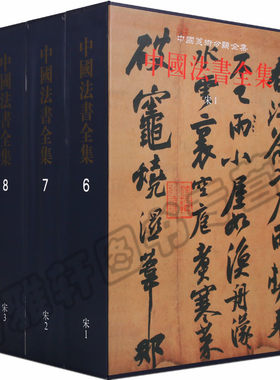 中國美術分類全集
中國法書全集
宋1
雨小屋如漁舟濛
水雲裏空庖煮寒菜
破竈燒濕葦那
中國法書全集
6
宋1
中國法書全集
7
宋2
中國法書全集
8
宋3